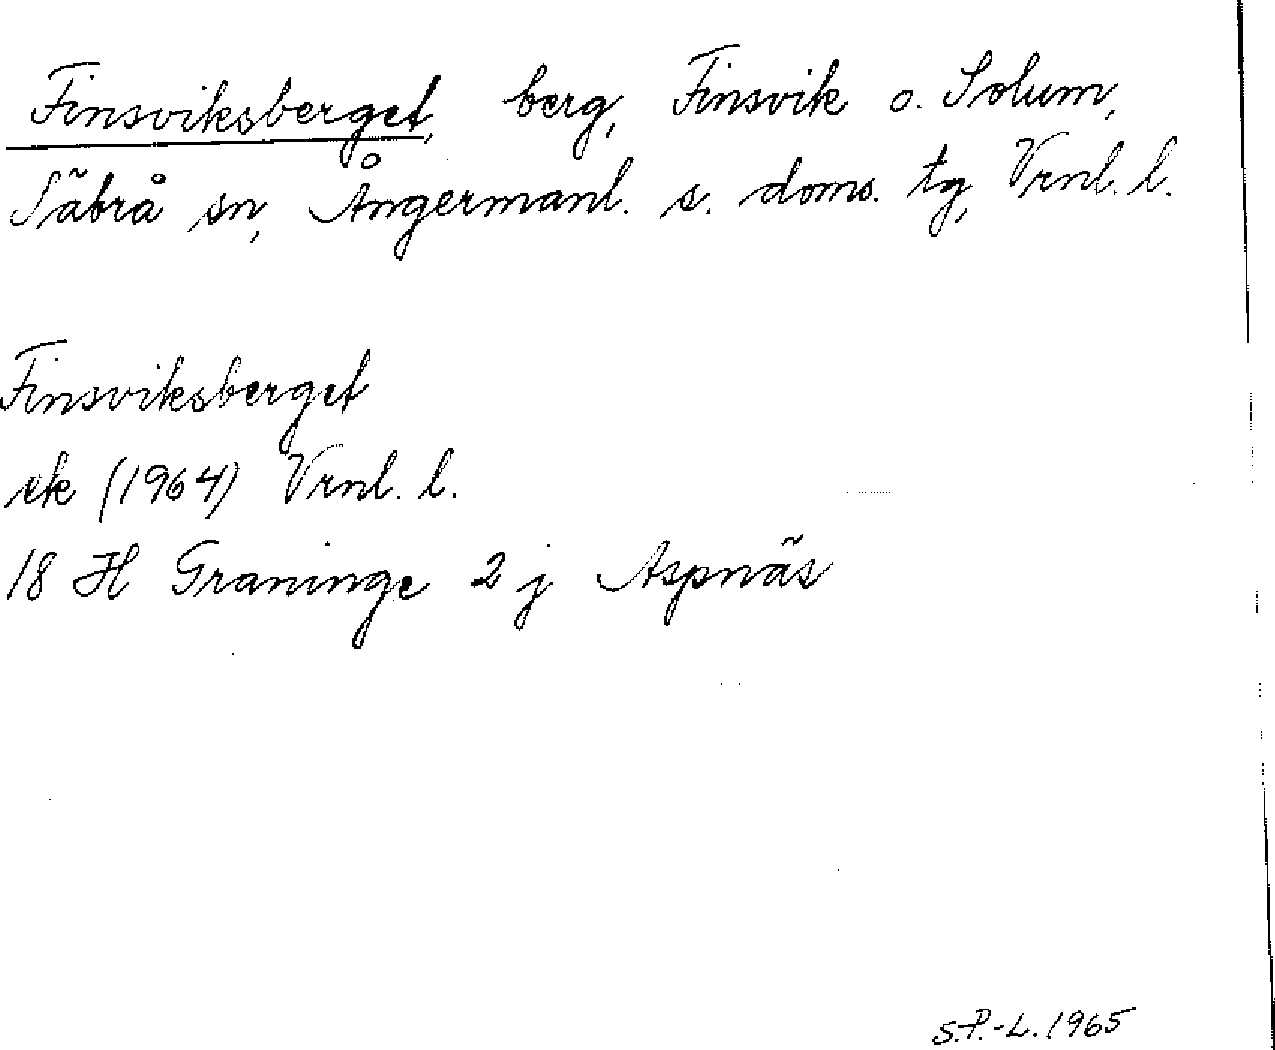 Finsviksberget, berg, Finsvik o. Solum,
Säbrå sn, Ångermanl. s. doms. tg, Vrnl. l.
Finsviksberget
ek (1964) Vrnl. l.
18 H Graninge 2 j Aspnäs
S.P.-L. 1965